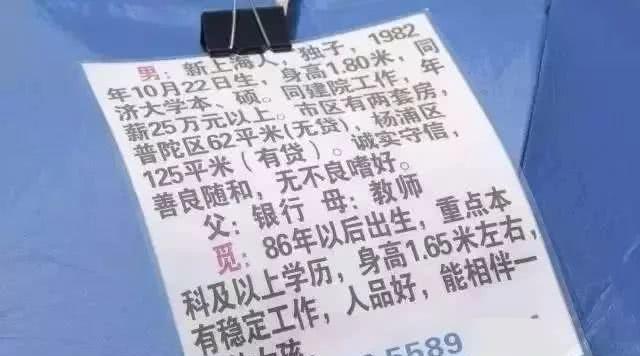 男：新上海人，独子，1982
年10月22日生，身高1.80米，同
济大学本、硕。同建院工作，年
薪25万元以上。市区有两套房，
普陀区62平米(无贷)，杨浦区
125平米（有贷）。诚实守信，
善良随和，无不良嗜好。
父：银行 母：教师
觅：86年以后出生，重点本
科及以上学历，身高1.65米左右，
有稳定工作，人品好，能相伴一
女孩
5589